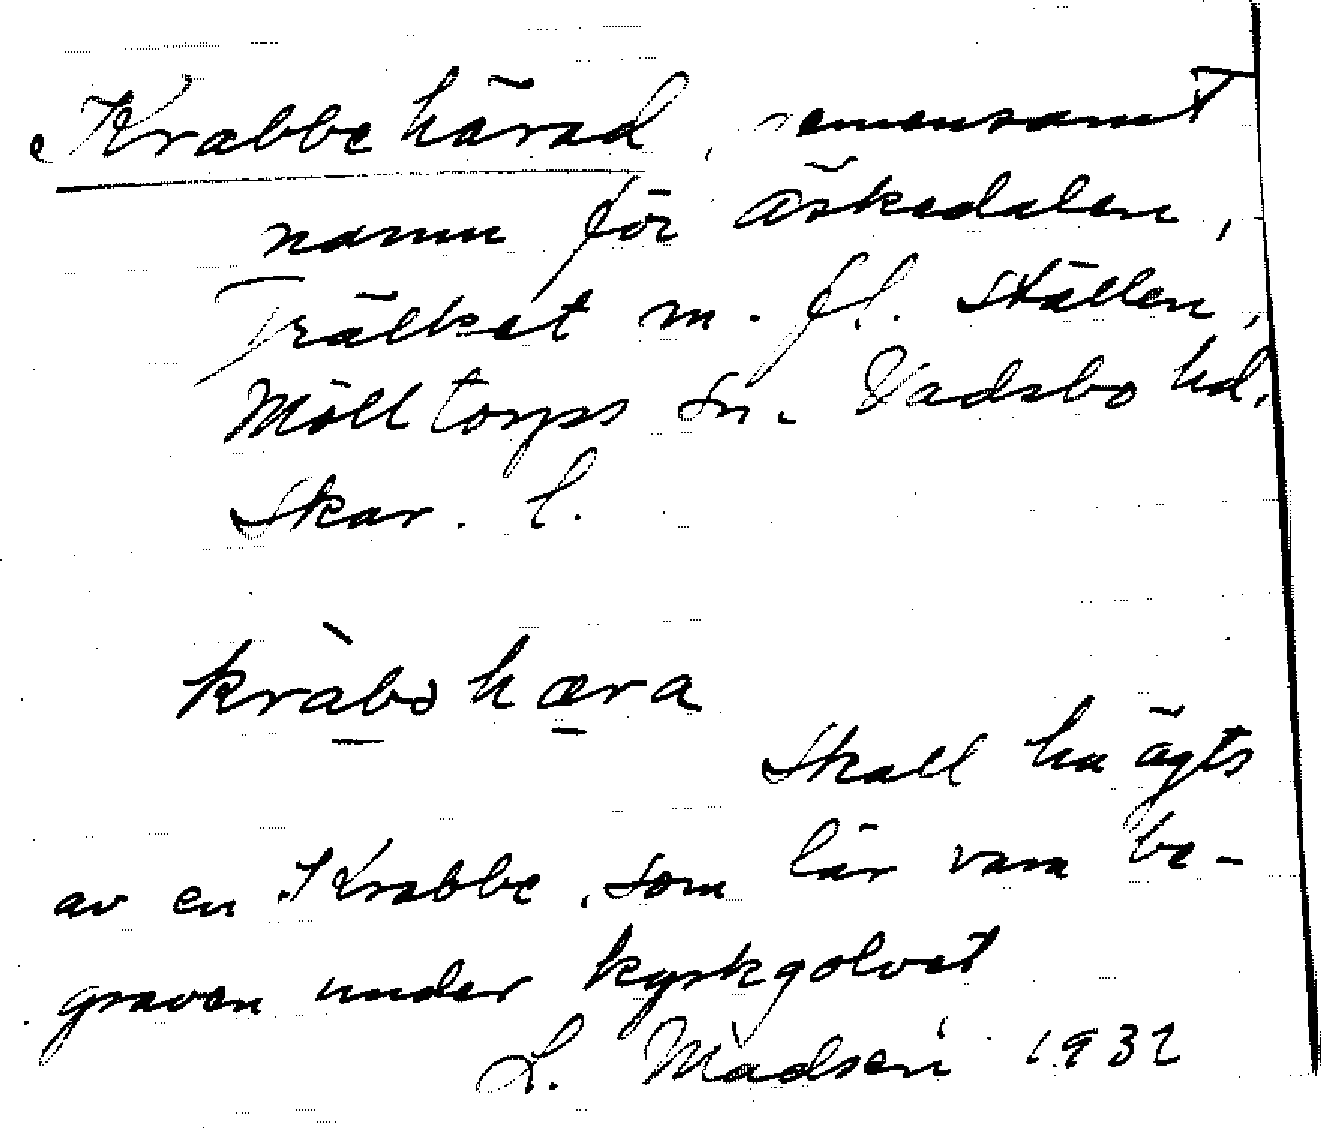 Krabbe härad, gemensamt
namn för Äskedalen,
Trälket m. fl. ställen,
Mölltorps sn. Vadsbo hd.
Skar. l.
kràbə hæra
Skall ha ägts
av en Krabbe, som lär vara be-
graven under kyrkgolvet
L. Madsén 1932